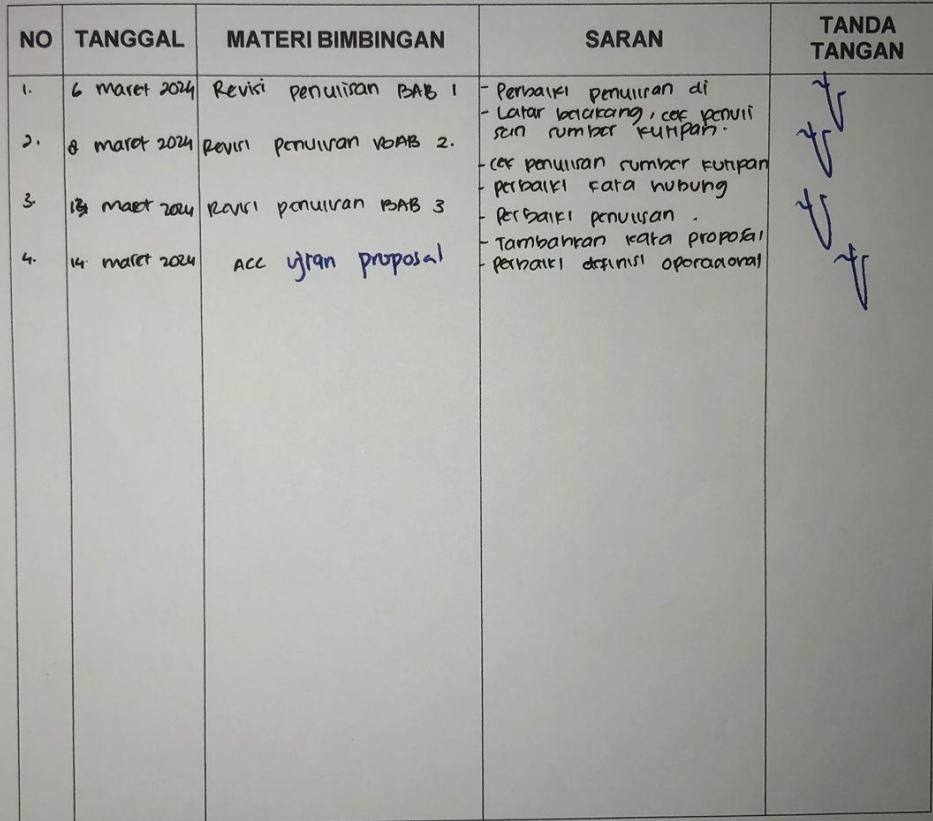 NO TANGGAL MATERI BIMBINGAN SARAN TANDA TANGAN
1. 6 maret 2024 Revisi penulisan BAB 1 - Perbaiki penulisan di
- Latar belakang, cek penuli
san sumber kutipan.
2. 8 maret 2024 Revisi penulisan BAB 2.
- cek penulisan sumber kutipan
- perbaiki kata hubung
3. 13 maret 2024 Revisi penulisan BAB 3 - Perbaiki penulisan.
- Tambahkan kata proposal
4. 14 maret 2024 ACC ujian proposal - perbaiki definisi operasional